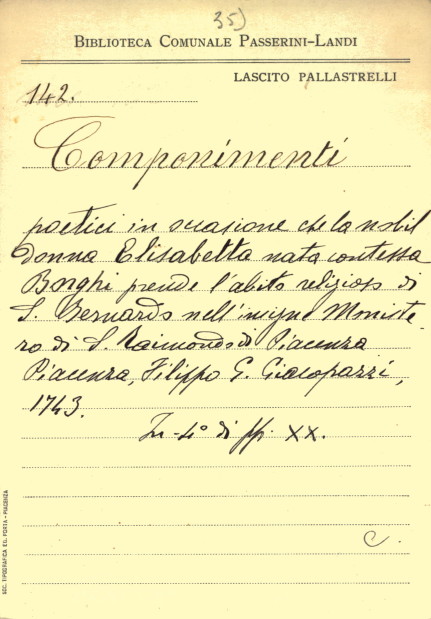 35)
BIBLIOTECA COMUNALE PASSERINI-LANDI
LASCITO PALLASTRELLI
142.
Componimenti
poetici in occasione che la nobil
donna Elisabetta nata contessa
Borghi prende l'abito religioso di
S. Bernardo nell'insigne Moniste-
ro di S. Raimondo di Piacenza
Piacenza, Filippo G. Giacopazzi,
1743.
In-4° di pp. XX.
C.
SOC. TIPOGRAFICA ED. PORTA - PIACENZA